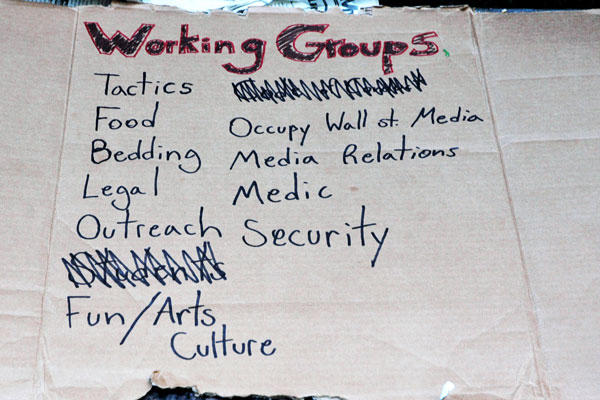 Working Groups
Tactics
Food
Bedding
Legal
Outreach
Fun/Arts
Culture
Occupy Wall st. Media
Media Relations
Medic
Security